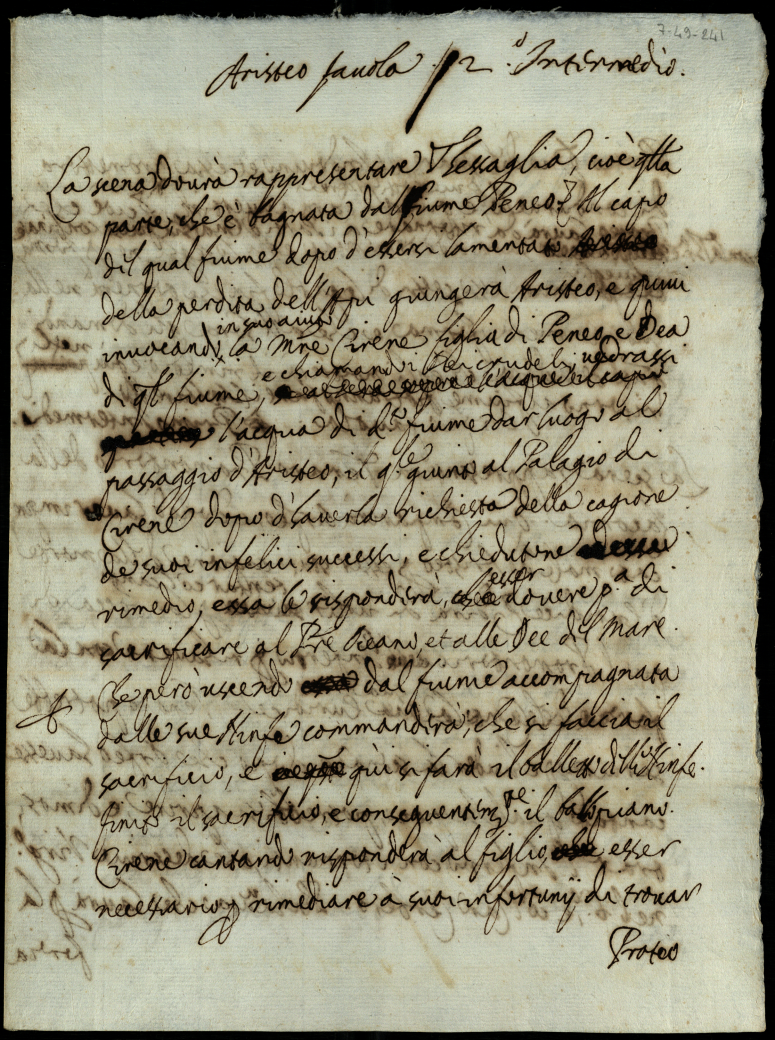 7-49-241
Aristeo favola // 2.º Intermedio.
La scena dovrà rappresentare Thessaglia, cioè qlla
parte, che è bagnata dal fiume Peneo Al capo
del qual fiume dopo d'essersi lamentato
della perdita dell'Api giungerà Aristeo, e quivi
in suo aiuto
invocando la Mre Cirene figlia di Peneo, e Dea
e chiamandi lei crudeli vedrassi
di ql fiume,
l'acqua di dº fiume dar luogo al
passaggio d'Aristeo, il qle giunto al Palagio di
Cirene dopo d'haverla richiesta della cagione
de suoi infelici successi, e chiedutone
rimedio, essa le risponderà, esser dovere pª di
sacrificare al Pre Oceano, et alle Dee del Mare.
Che però uscendo dal fiume accompagnata
dalle sue Ninfe commanderà, che si faccia il
sacrificio, e quì si farà il balletto delle Ninfe.
finito il sacrificio, e conseguentemte il
Cirene cantando risponderà al figlio, esser
necessario p rimediare à suoi infortunij di trovar
Proteo